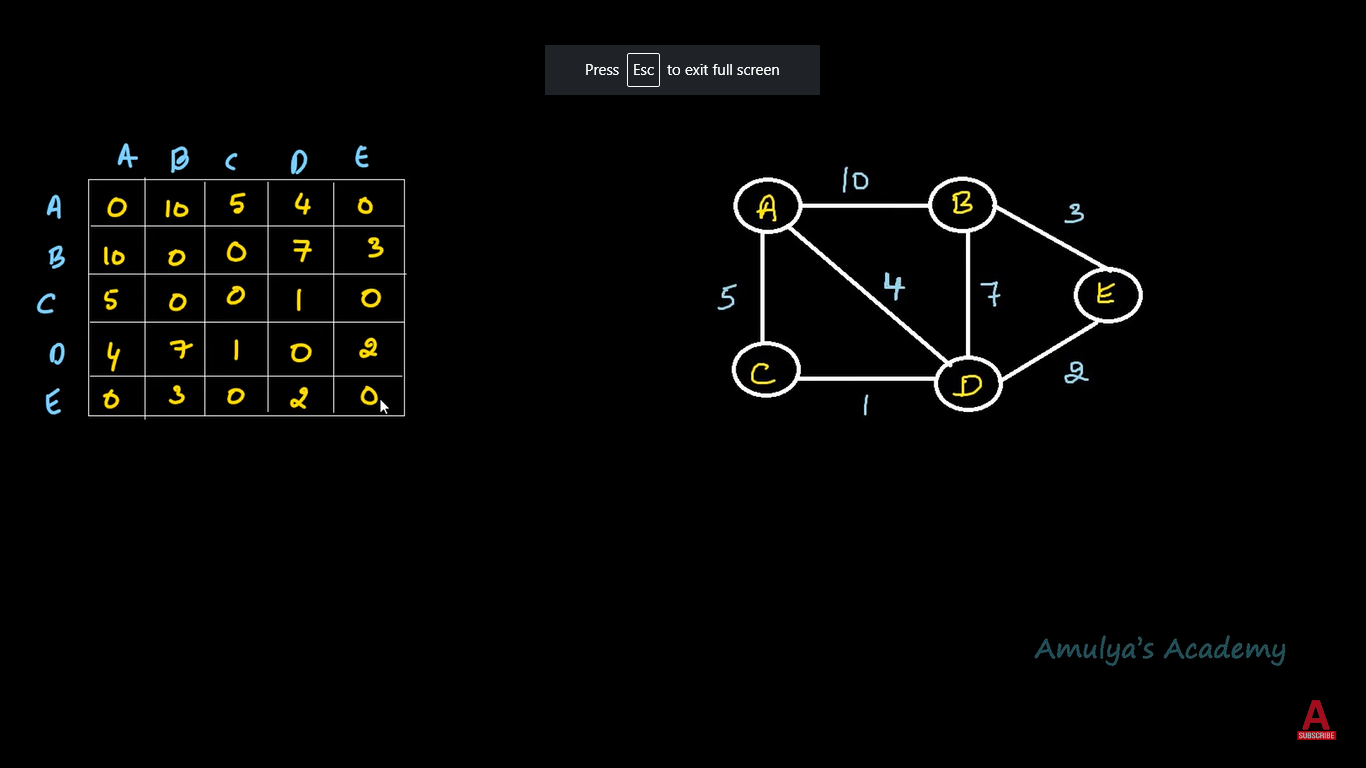 Press Esc to exit full screen
A B C D E
A 0 10 5 4 0
B 10 0 0 7 3
C 5 0 0 1 0
D 4 7 1 0 2
E 0 3 0 2 0
10
A B
3
5 4 7 E
C D 2
1
Amulya's Academy
A
SUBSCRIBE